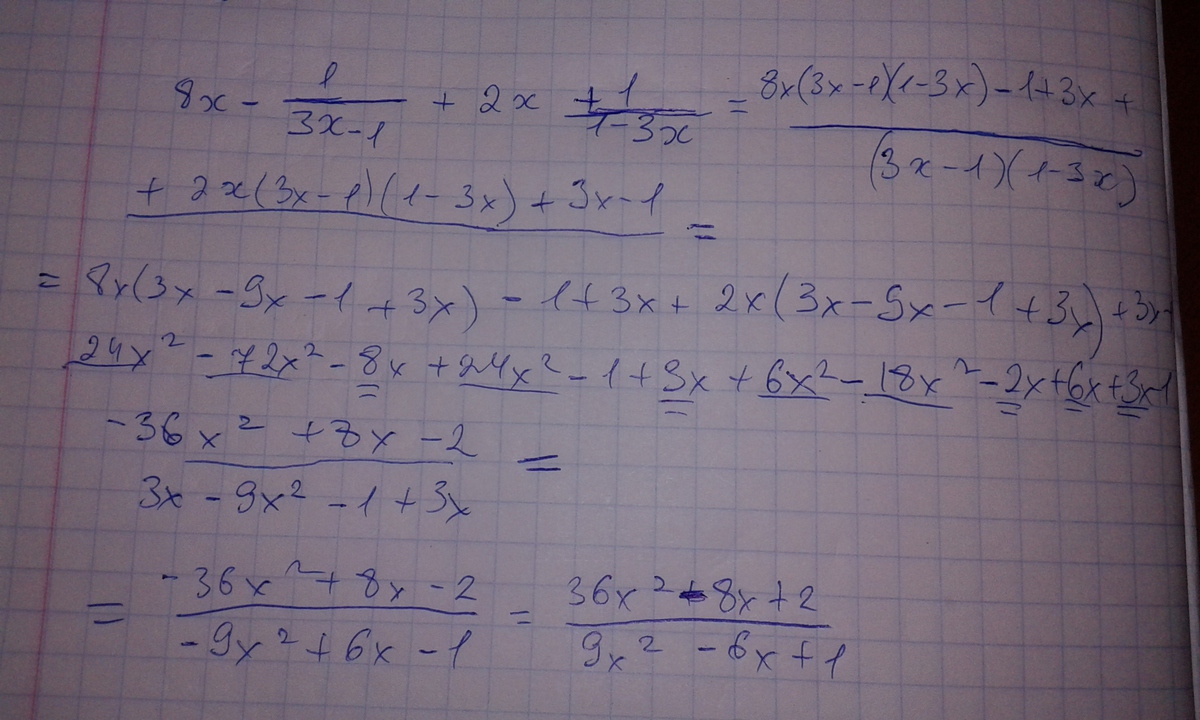 8x - 1/(3x-1) + 2x + 1/(1-3x) = (8x(3x-1)(1-3x) - 1+3x +)/((3x-1)(1-3x))
+ 2x(3x-1)(1-3x) + 3x-1 =
= 8x(3x - 9x - 1 + 3x) - 1 + 3x + 2x(3x - 9x - 1 + 3x) + 3x -
24x² - 72x² - 8x + 24x² - 1 + 3x + 6x² - 18x² - 2x + 6x + 3x - 1
(-36x² + 8x - 2)/(3x - 9x² - 1 + 3x) =
= (-36x² + 8x - 2)/(-9x² + 6x - 1) = (36x² - 8x + 2)/(9x² - 6x + 1)